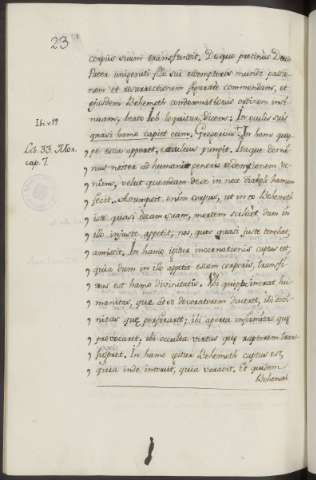 23
corpus suum transfixit. De quo protinus Deus
Pater unigeniti filii sui redemptoris mundi passio-
nem et resurrectionem figurate commendans, et
ejusdem Behemoth condemnationis ordinem insi-
nuans, beato Job loquitur, dicens: In oculis suis
quasi hamo capiet eum. Gregorius: In hamo quip-
pe esca apparet, aculeus pungit. Itaque Domi-
nus noster ad humani generis redemptionem ve-
niens, velut quendam de se in nece diaboli hamum
fecit. Assumpsit enim corpus, ut in eo Behemoth
iste quasi escam suam, mortem scilicet dum in
illo injuste appetit, nos, quos quasi juste tenebat,
amisit. In hamo igitur incarnationis captus est,
quia dum in illo appetit escam corporis, transfi-
xus est hamo divinitatis. Ibi quippe inerat hu-
manitas, que ad se devoratorem duceret, ibi divi-
nitas que perforaret; ibi aperta infirmitas que
provocaret, ibi occulta virtus que raptorem trans-
figeret. In hamo igitur Behemoth captus est,
quia inde interiit, quia voravit. Et quidem
Behemoth
Lib. 33. Mor.
cap. 7.